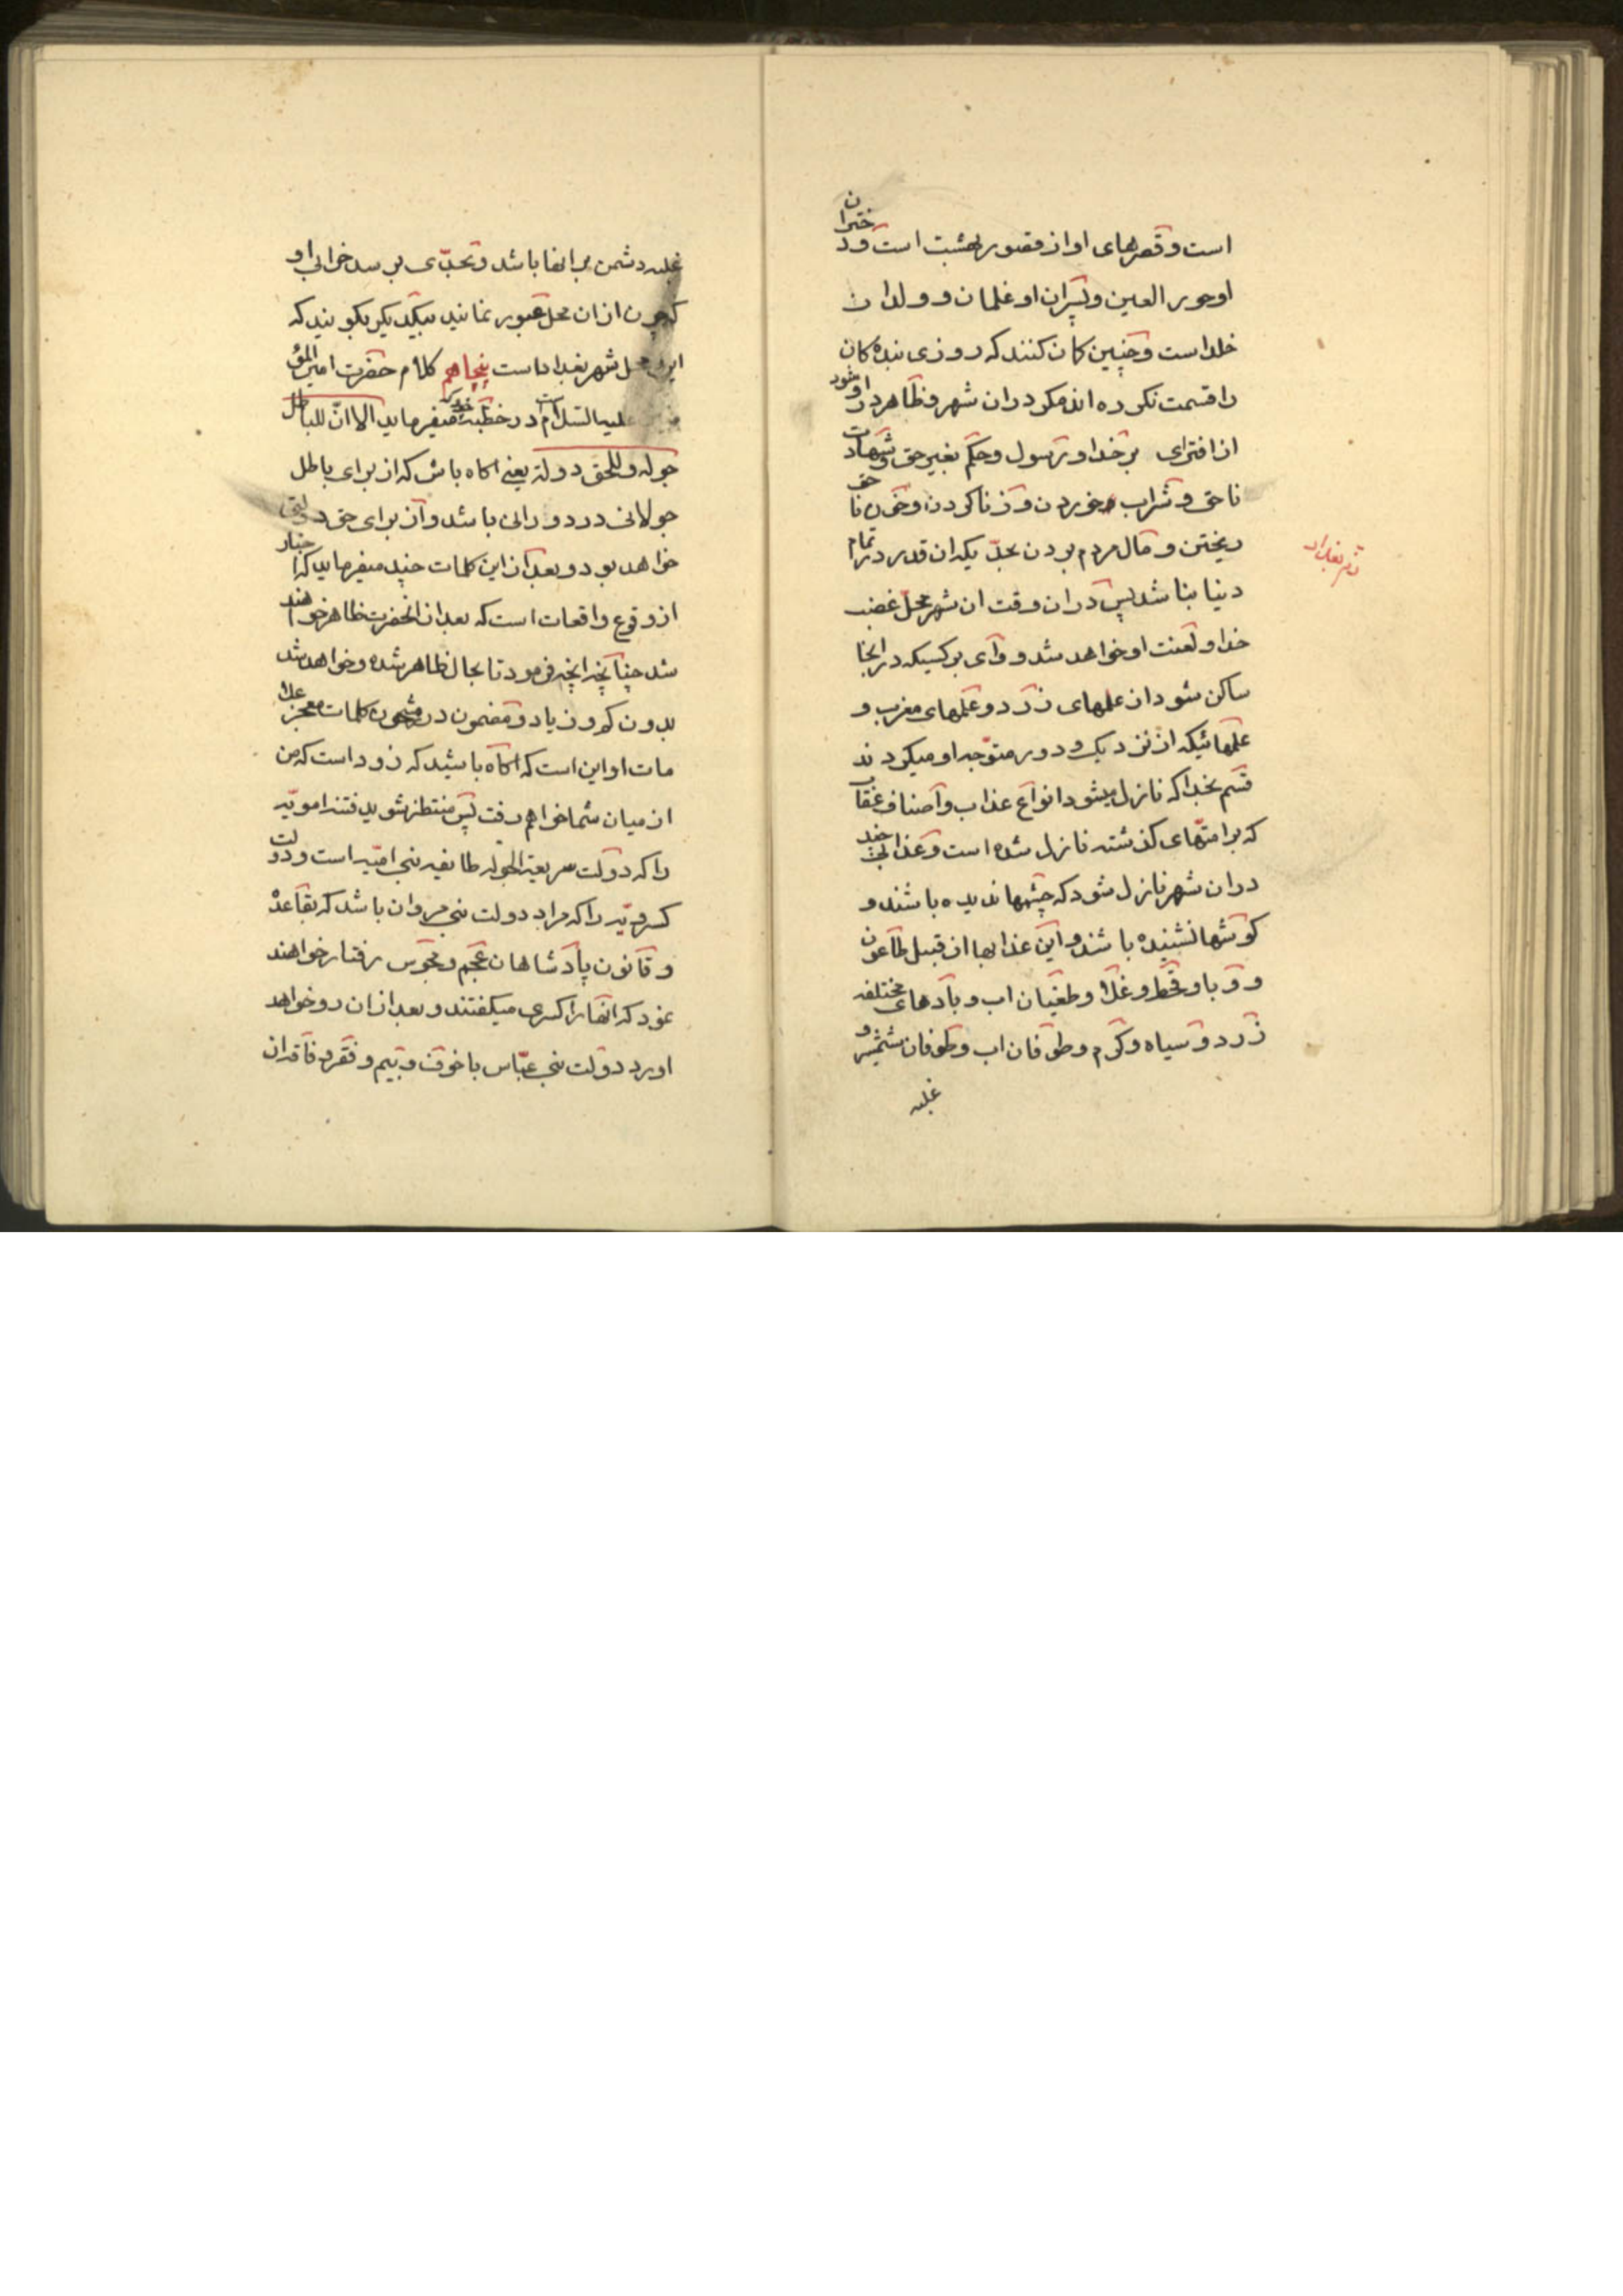 است و قصرهای او از قصور بهشت است و دختران
او حور العین و پسران او غلمان و ولدان
خلد است و چنین کمان کنند که روزی بندکان
را قسمت نکرده اند مکر در ان شهر و ظاهر شود در او
از افترای بر خدا و رسول و حکم بغیر حق و شهادت
ناحق و شراب خوردن و زنا کردن و خون ناحق
ریختن و مال مردم بردن بحدّیکه ان قدر در تمام
دنیا نباشد پس در ان وقت ان شهر محلّ غضب
خدا و لعنت او خواهد شد و وای بر کسیکه در انجا
ساکن شود از علمهای زرد و علمهای مغرب و
علمهائیکه از نزدیک و دور متوجه او میکردند
قسم بخدا که نازل میشود انواع عذاب و اصناف عقاب
که بر امتهای کذشته نازل شده است و عذابی چند
در ان شهر نازل شود که چشمها ندیده باشند و
کوشها نشنیده باشند و این عذابها از قبیل طاعون
و وبا و قحط و غلا و طغیان اب و بادهای مختلفه
زرد و سیاه و کرم و طوفان اب و طوفان شمشیر و
غلبه
شهر بغداد
غلبه دشمن بر انها باشد و بحدّی برسد خرابی او
که چون از ان محل عبور نمایند بیکدیکر بکویند که
این محل شهر بغداد است پنجاهم کلام حضرت امیر المؤ
علیه السلام است در خطبه خود که میفرماید الا انّ للباطل
جولة و للحق دولة یعنی اکاه باش که از برای باطل
جولانی در دورانی باشد و از برای حق دولتی
خواهد بود و بعد از این کلمات چند میفرماید که اخبار
از وقوع واقعات است که بعد از انحضرت ظاهر خواهند
شد چنانچه انچه فرمود تا بحال ظاهر شده و خواهد شد
بدون کم و زیاد و مضمون در مشحون کلمات معجز علا
مات او این است که اکاه باشید که زود است که من
از میان شما خواهم رفت پس منتظر شوید فتنه امویّه
را که دولت سریعة الجوله طایفه بنی امیّه است و دولت
کسرویّه را که مراد دولت بنی مروان باشد که بقاعده
و قانون پادشاهان عجم و مجوس رفتار خواهند
نمود که انها را کسری میکفتند و بعد از ان رو خواهد
اورد دولت بنی عبّاس با خوف و بیم و فقر و فاقه از ان